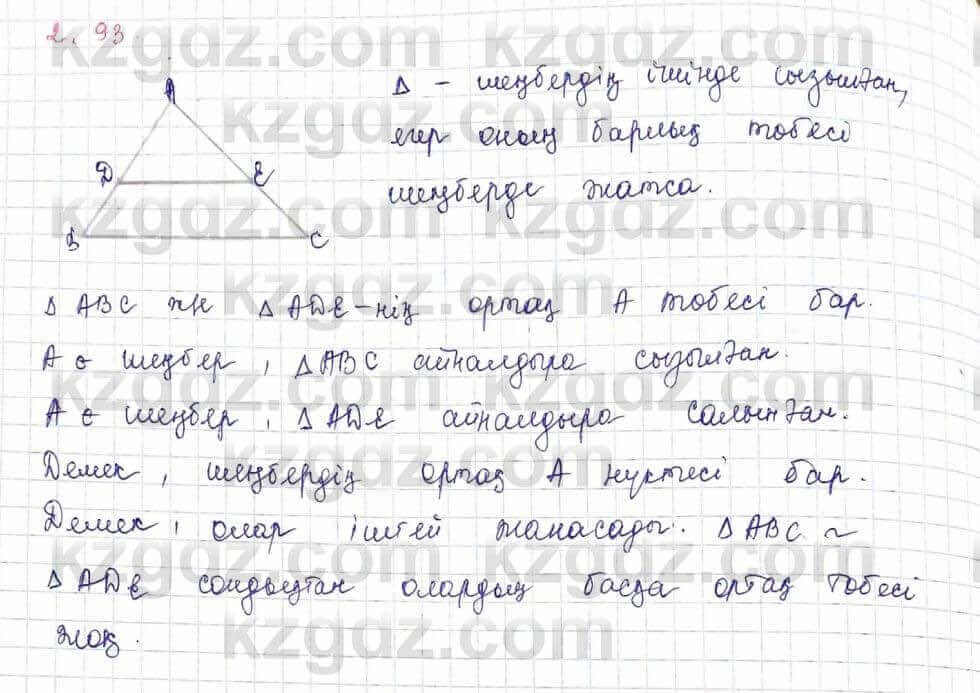 2. 93
A
Д
E
B
C
Δ - шеңбердің ішінде сызылған,
егер оның барлық төбесі
шеңберде жатса.
Δ ABC және Δ ADE-нің ортақ A төбесі бар.
A ∈ шеңбер, Δ ABC айналдыра сызылған.
A ∈ шеңбер, Δ ADE айналдыра салынған.
Демек, шеңбердің ортақ A нүктесі бар.
Демек, олар іштей жанасады. Δ ABC ~
Δ ADE сондықтан олардың басқа ортақ төбесі
жоқ.
kzgdz.com